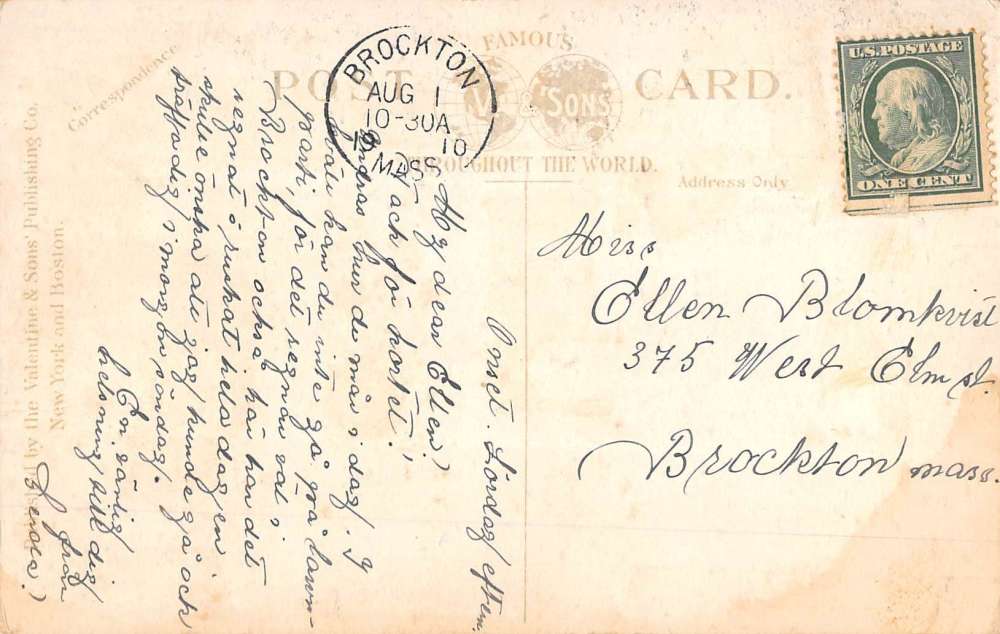 FAMOUS
POST CARD.
& SONS'
THROUGHOUT THE WORLD.
Correspondence
Address Only
Published by the Valentine & Sons' Publishing Co.
New York and Boston.
BROCKTON
AUG 1
10-30A
10
MASS.
U.S. POSTAGE
ONE CENT
Miss
Ellen Blomkvist
375 West Elm st.
Brockton mass.
Lördag eftem.
My dear Ellen!
Tack för kortet!
Undras hur du mår i dag. I
kväll kan du inte gå på lawn-
parti, för det regnar väl i
Brockton också, här har det
regnat o ruskat hela dagen
skulle önska att jag kunde gå och
träffa dig i morgon, söndag.
En vänlig
helsning till dig
från